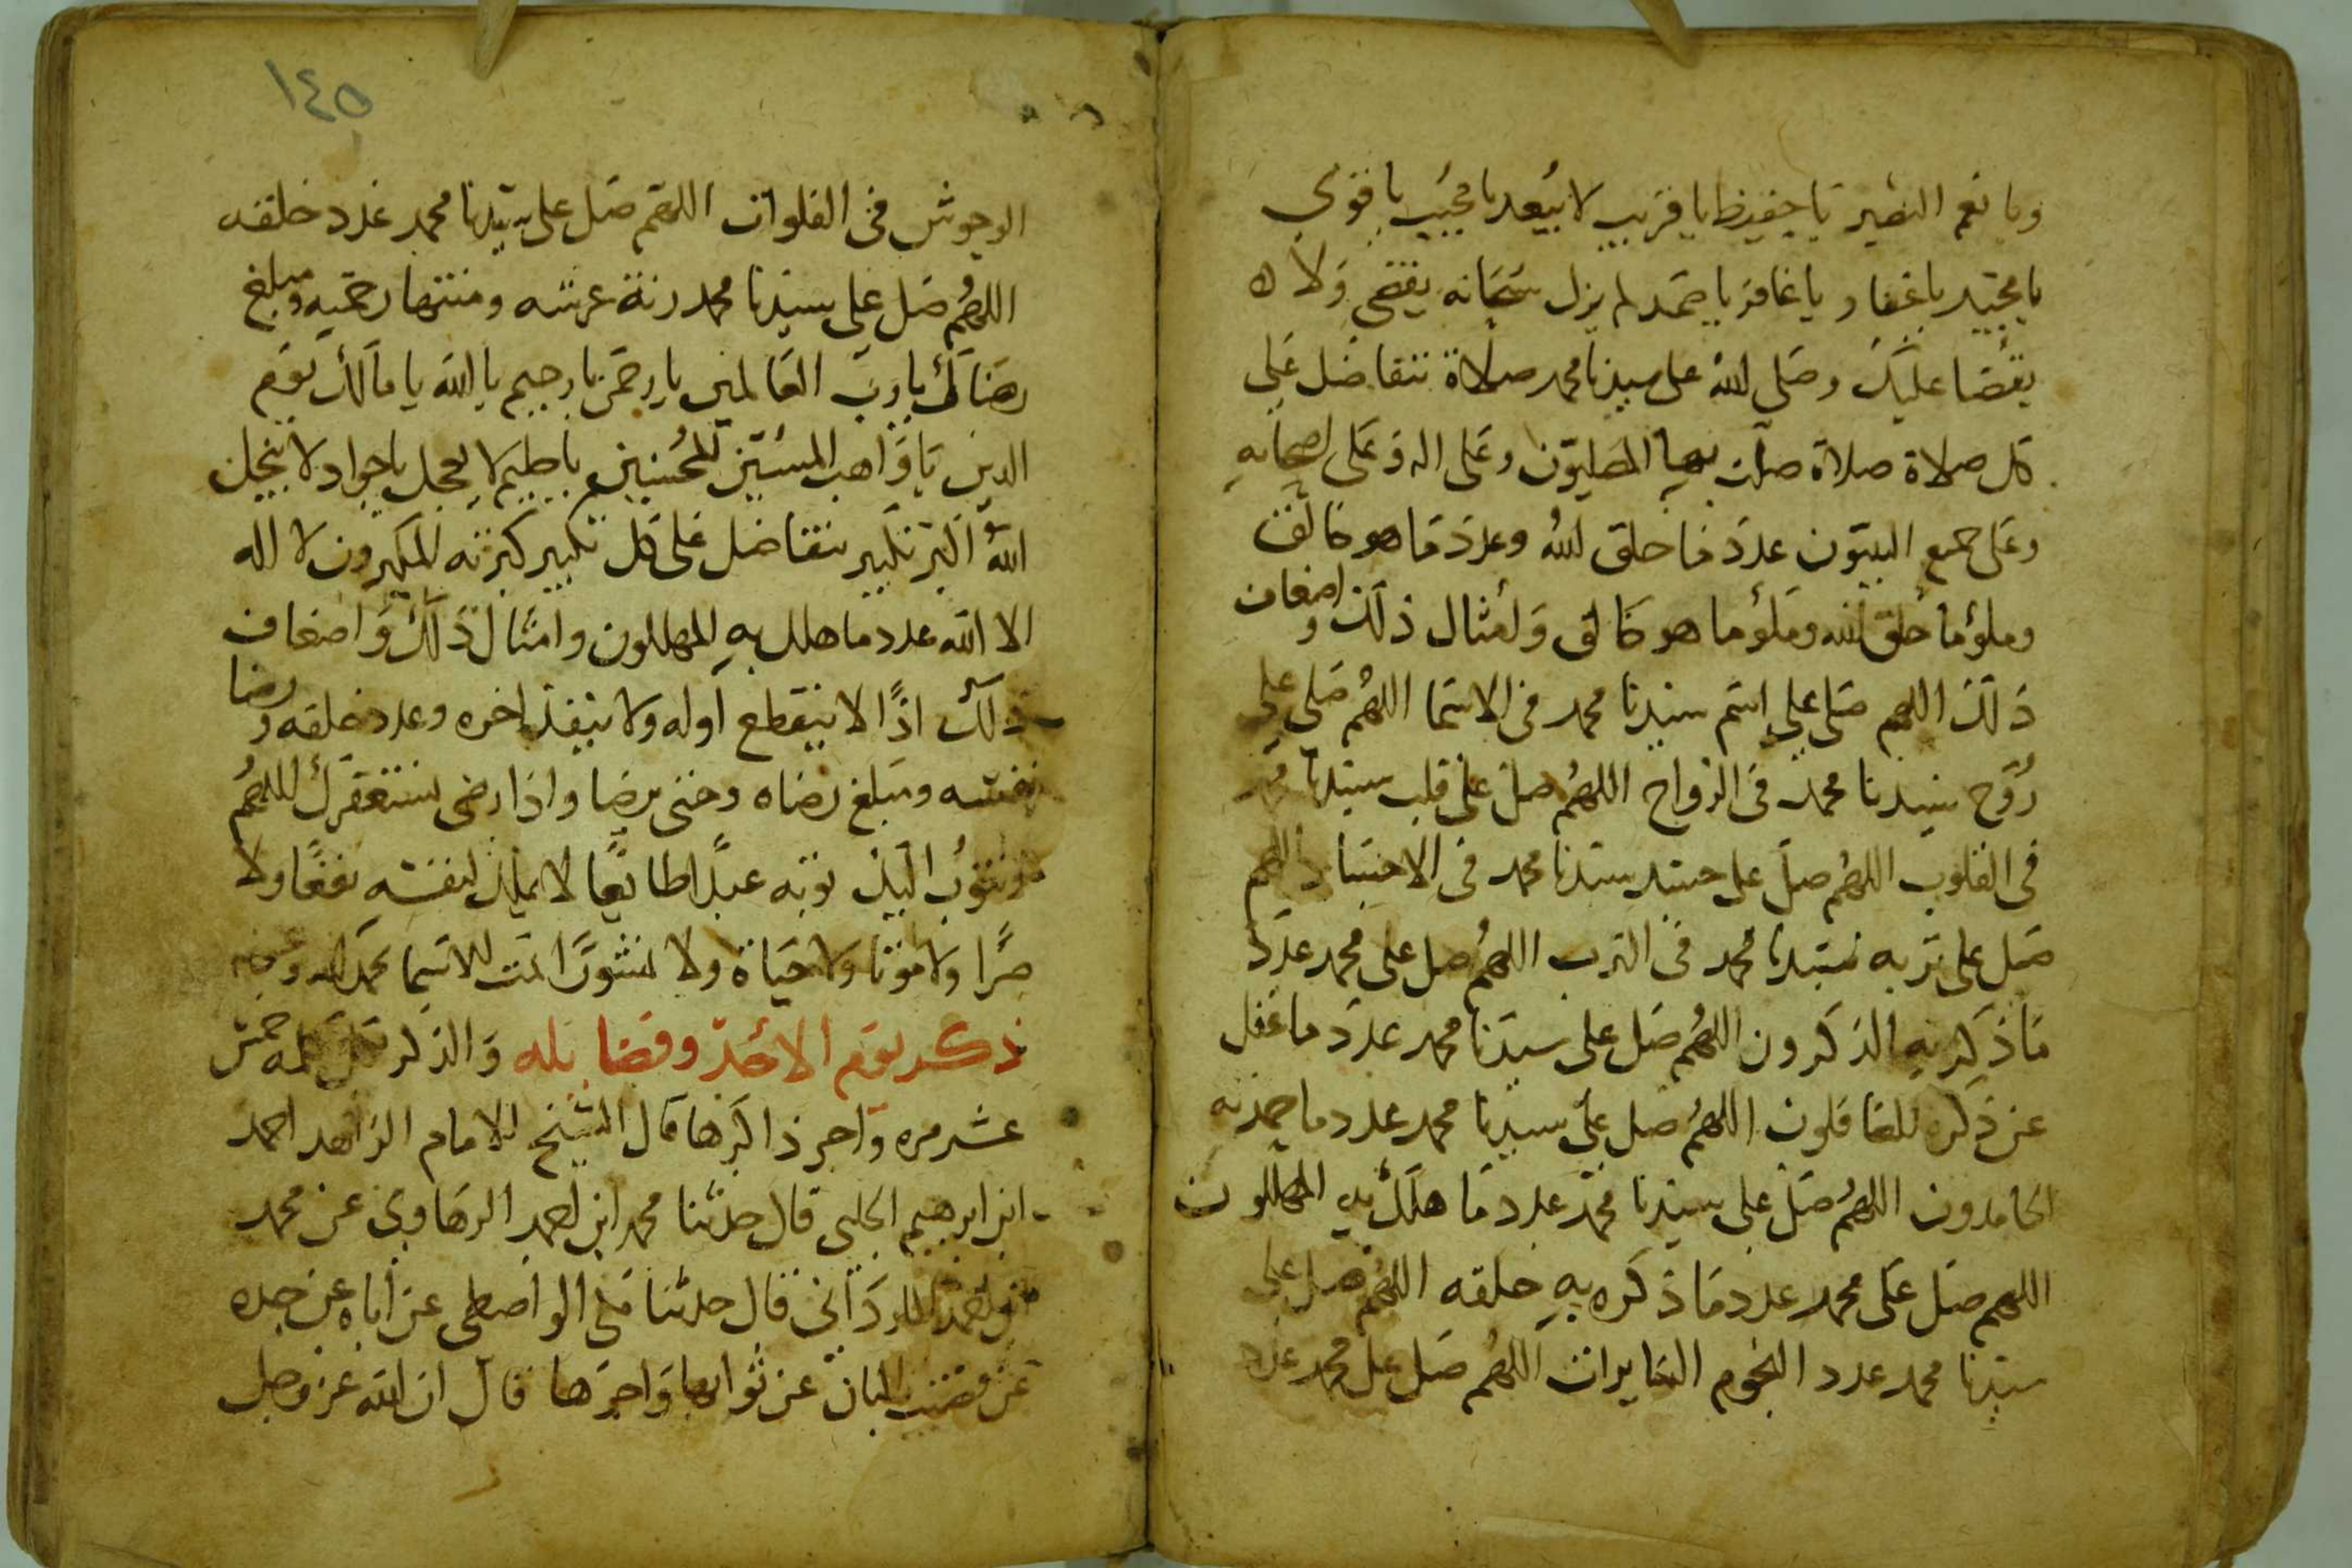 ويا نعم النصير يا حفيظ يا قريب لا يبعد يا مجيب يا قوي
يا مجيد يا غفار يا غافر يا صمد لم يزل سبحانه يقضي ولا
يقضا عليك وصلي الله على سيدنا محمد صلاة تتفاضل على
كل صلاة صلاة صلت بها المصليون وعلى اله وعلى اصحابه
وعلى جميع النبيون عدد ما خلق الله وعدد ما هو خالق
وملؤ ما خلق الله وملؤ ما هو خالق وأمثال ذلك واضعاف
ذلك اللهم صلي على اسم سيدنا محمد في الاسما اللهم صلي على
روح سيدنا محمد في الارواح اللهم صل على قلب سيدنا محمد
في القلوب اللهم صل على جسد سيدنا محمد في الاجساد اللهم
صل على تربه سيدنا محمد في الترب اللهم صل على محمد عدد
ما ذكر به الذكرون اللهم صل على سيدنا محمد عدد ما غفل
عن ذكره الغافلون اللهم صل على سيدنا محمد عدد ما حمد به
الحامدون اللهم صل على سيدنا محمد عدد ما هلل به المهللون
اللهم صل على محمد عدد ما ذكره به خلقه اللهم صل على
سيدنا محمد عدد النجوم السايرات اللهم صل على محمد عدد
١٤٥
الوحوش في الفلوات اللهم صل على سيدنا محمد عدد خلقه
اللهم صل على سيدنا محمد زنة عرشه ومنتها رحمته ومبلغ
رضاك يا رب العالمين يا رحمن يا رحيم يا الله يا مالك يوم
الدين يا واهب المسئين للمحسنين يا حليم لا يعجل يا جواد لا يبخل
الله اكبر تكبير يتفاضل على كل تكبير كبرته المكبرون لا اله
الا الله عدد ما هلل به المهللون وامثال ذلك واضعاف
ذلك اذا لا ينقطع اوله ولا ينفذ اخره وعدد خلقه ورضا
نفسه ومبلغ رضاه وحتى يرضا واذا رضى نستغفرك اللهم
ونتوب اليك توبه عبدا طائعا لا يملك لنفسه نفعا ولا
ضرا ولا موتا ولا حياة ولا نشورا تمت الاسما بحمد الله وعونه
ذكر يوم الاحد وفضايله والذكر كل كلمه خمس
عشر مره واجر ذاكرها قال الشيخ الامام الزاهد احمد
ابن ابرهيم الحلبي قال حدثنا محمد ابن احمد الرهاوي عن محمد
قال حدثنا على الواصطى عن اباه عن جده
عن قضيب البان عن ثوابها واجرها قال ان الله عز وجل